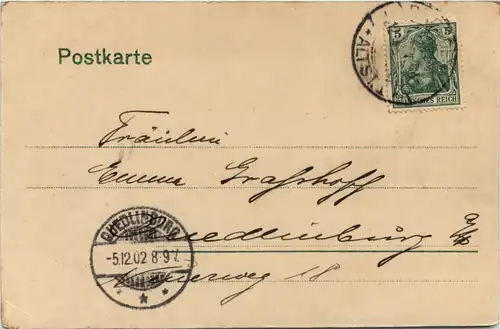 Postkarte
5 5
DEUTSCHES REICH
ALTS
Fräulein
Emma Grashoff
Quedlinburg a/H
weg 18
QUEDLINBURG
-5.12.02 8-9V.